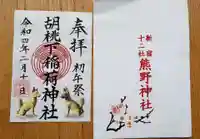 奉拝
初午祭
胡桃下稲荷神社
令和四年二月十日
新宿
十二社
熊野神社